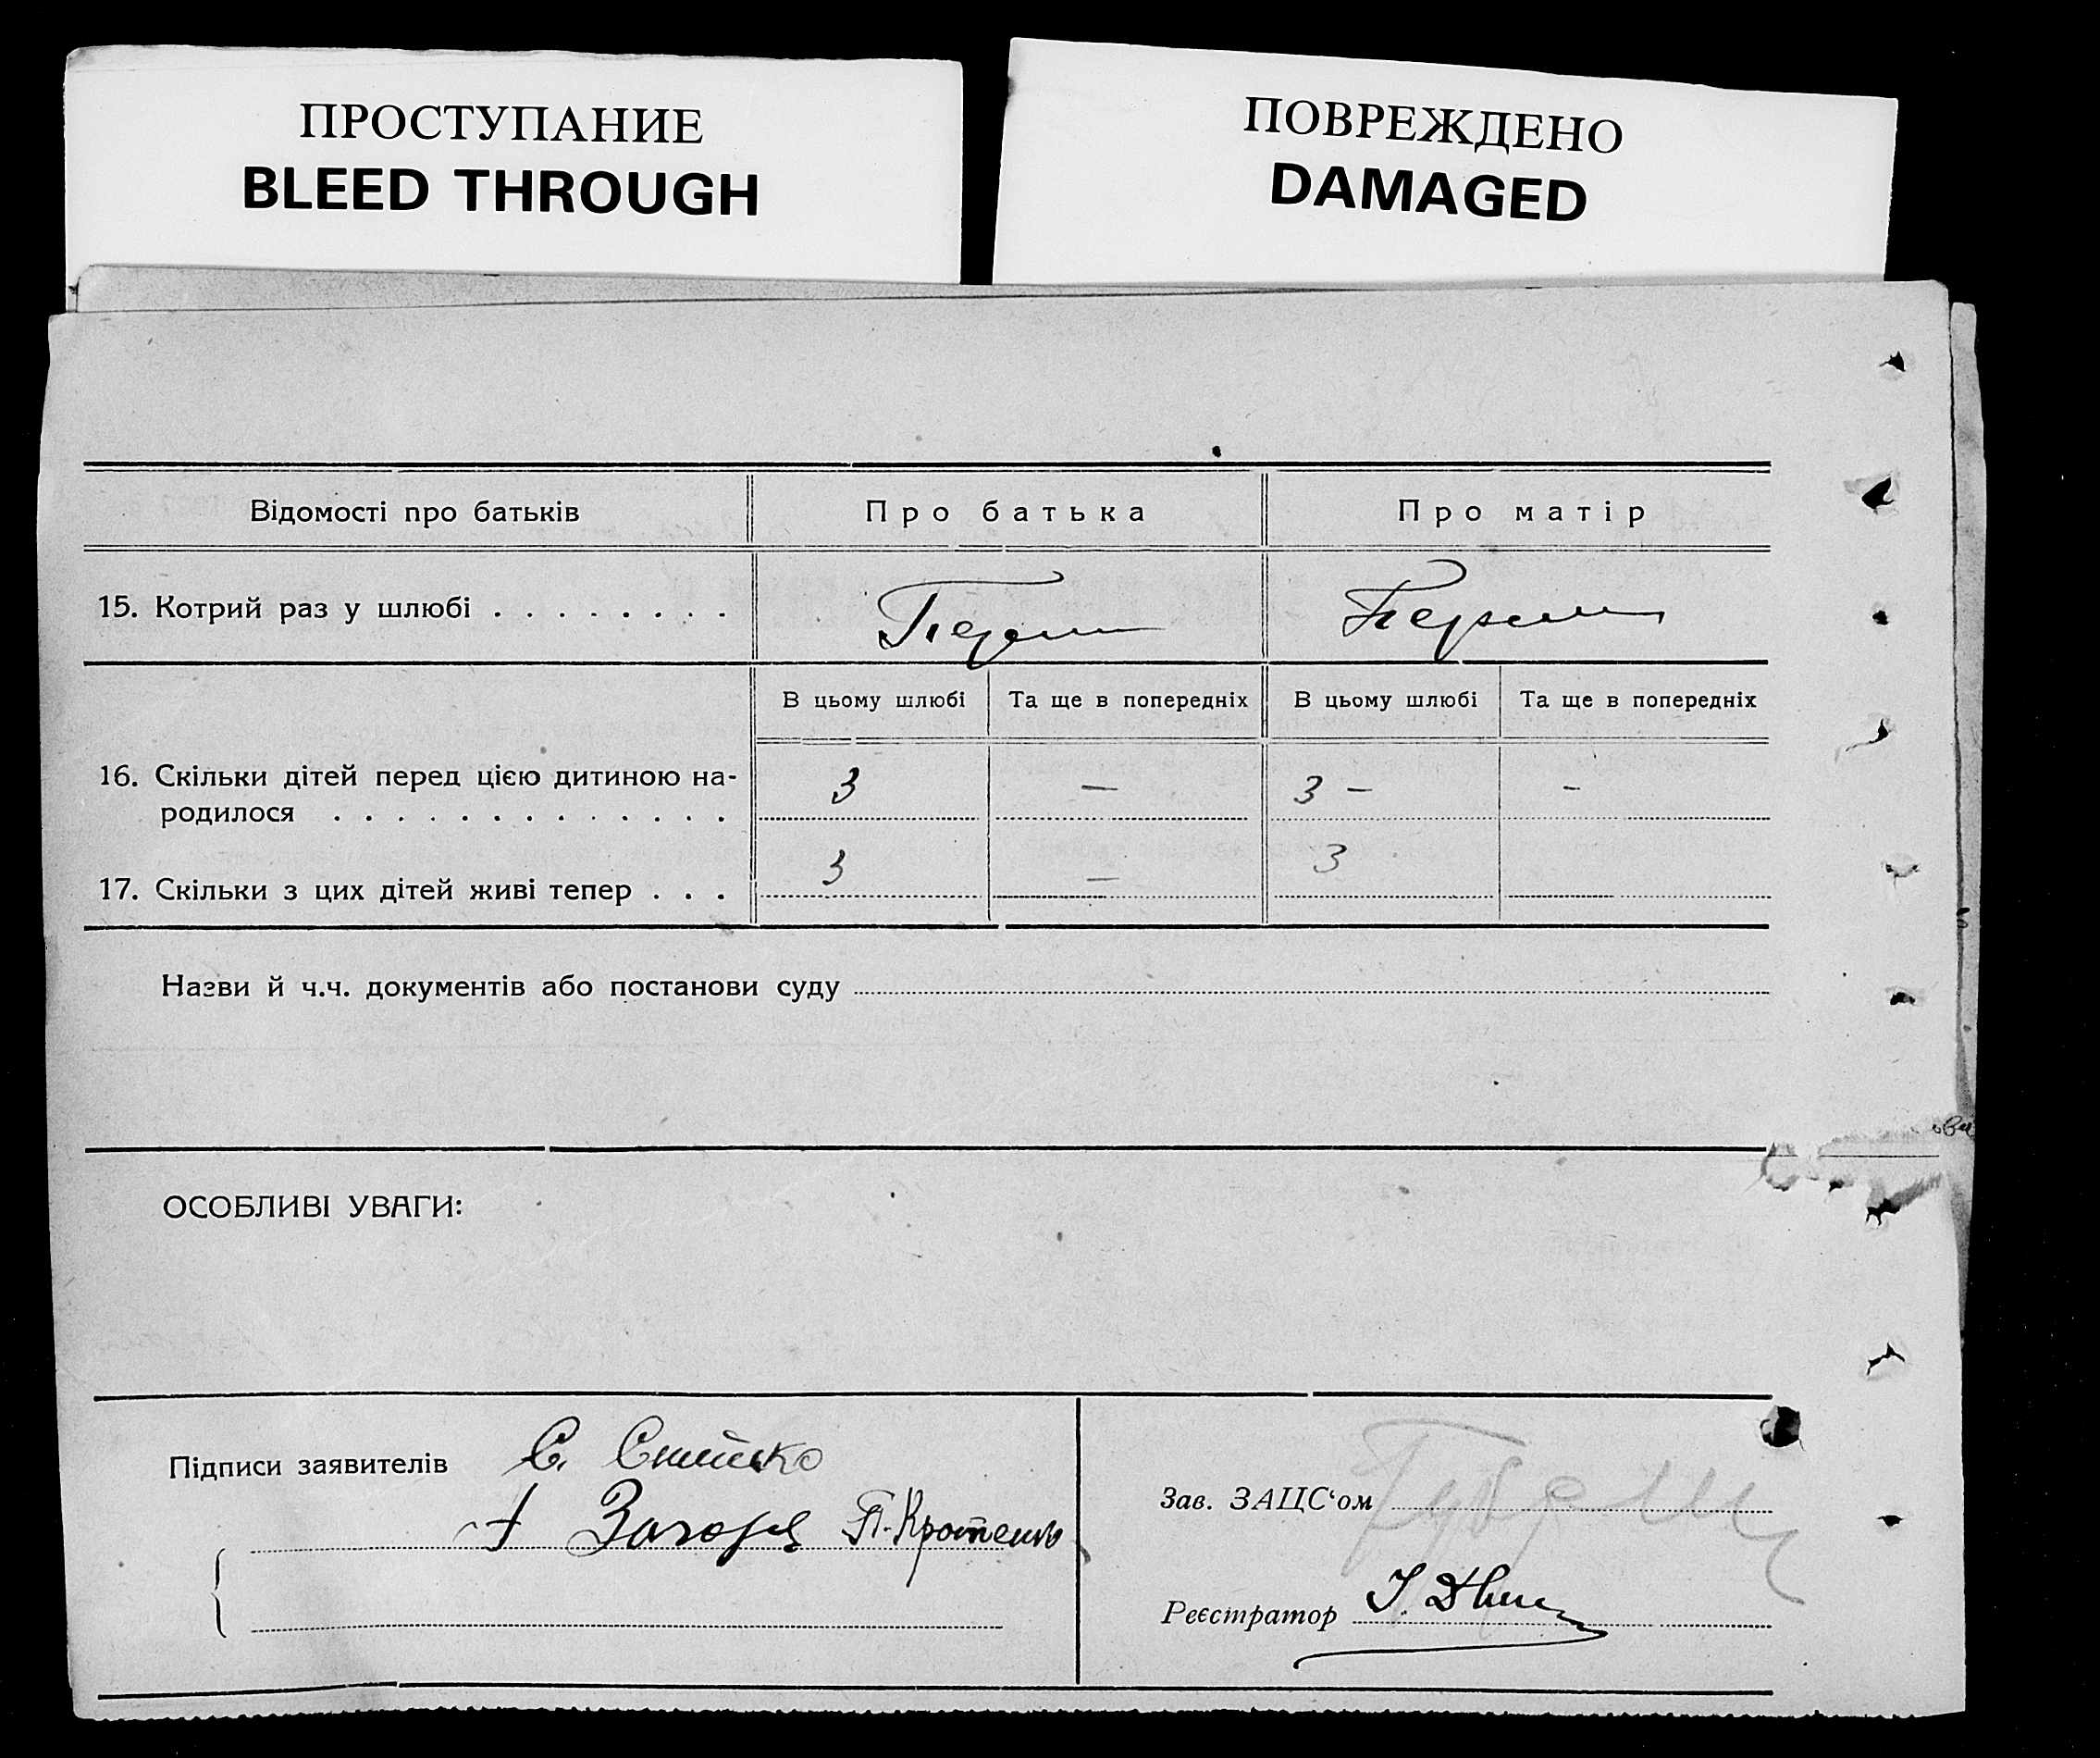 ПРОСТУПАНИЕ
BLEED THROUGH
ПОВРЕЖДЕНО
DAMAGED
Відомості про батьків Про батька Про матір
15. Котрий раз у шлюбі . . . . . . . .
В цьому шлюбі Та ще в попередніх В цьому шлюбі Та ще в попередніх
16. Скільки дітей перед цією дитиною на-
родилося . . . . . . . . . . . . . 3 — 3 — -
17. Скільки з цих дітей живі тепер . . . 3 — 3
Назви й ч.ч. документів або постанови суду
ОСОБЛИВІ УВАГИ:
Підписи заявителів С.
Зав. ЗАЦС‘ом
Реєстратор